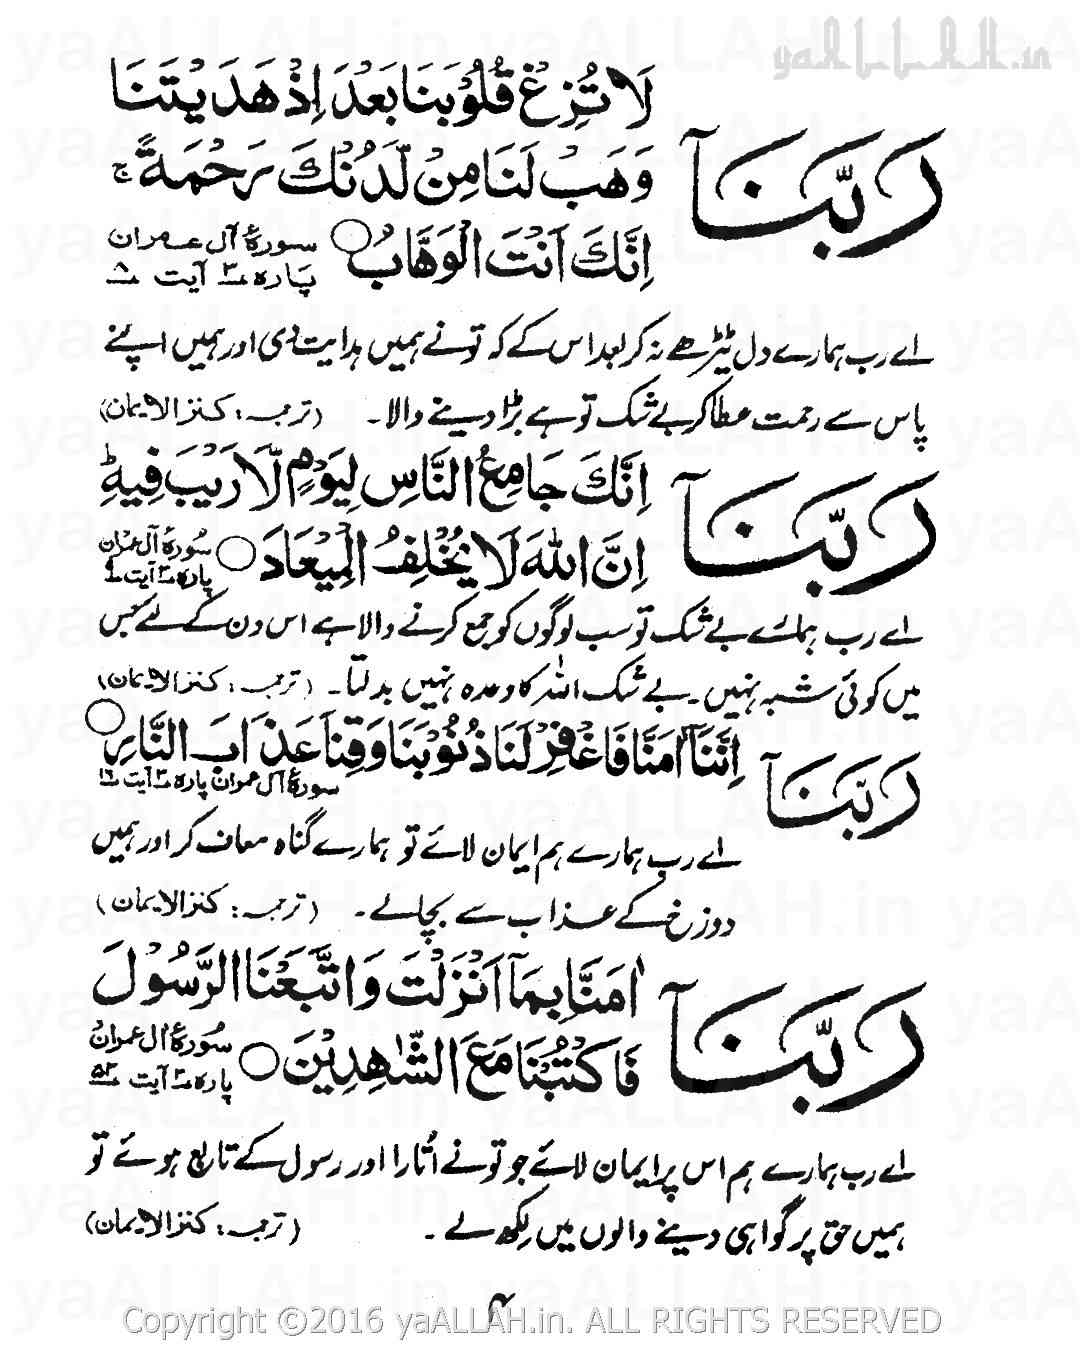 yaALLAH.in
رَبَّنَآ
لَا تُزِغْ قُلُوْبَنَا بَعْدَ اِذْ هَدَيْتَنَا
وَهَبْ لَنَا مِنْ لَّدُنْكَ رَحْمَةً ج
اِنَّكَ اَنْتَ الْوَهَّابُ
سورۂ آل عمران
پارہ ۳ آیت ۸
اے رب ہمارے دل ٹیڑھے نہ کر بعد اس کے کہ تو نے ہمیں ہدایت دی اور ہمیں اپنے
پاس سے رحمت عطا کر بے شک تو ہے بڑا دینے والا۔ (ترجمہ: کنزالایمان)
رَبَّنَآ
اِنَّكَ جَامِعُ النَّاسِ لِيَوْمٍ لَّا رَيْبَ فِيْهِ ط
اِنَّ اللّٰهَ لَا يُخْلِفُ الْمِيْعَادَ
سورۂ آل عمران
پارہ ۳ آیت ۹
اے رب ہمارے بے شک تو سب لوگوں کو جمع کرنے والا ہے اس دن کے لئے جس
میں کوئی شبہ نہیں۔ بے شک اللہ کا وعدہ نہیں بدلتا۔ (ترجمہ: کنزالایمان)
رَبَّنَآ
اِنَّنَآ اٰمَنَّا فَاغْفِرْ لَنَا ذُنُوْبَنَا وَقِنَا عَذَابَ النَّارِ
سورۂ آل عمران پارہ ۳ آیت ۱۶
اے رب ہمارے ہم ایمان لائے تو ہمارے گناہ معاف کر اور ہمیں
دوزخ کے عذاب سے بچالے۔ (ترجمہ: کنزالایمان)
رَبَّنَآ
اٰمَنَّا بِمَآ اَنْزَلْتَ وَاتَّبَعْنَا الرَّسُوْلَ
فَاكْتُبْنَا مَعَ الشّٰهِدِيْنَ
سورۂ ال عمران
پارہ ۳ آیت ۵۳
اے رب ہمارے ہم اس پر ایمان لائے جو تو نے اُتارا اور رسول کے تابع ہوئے تو
ہمیں حق پر گواہی دینے والوں میں لکھ لے۔ (ترجمہ: کنزالایمان)
Copyright ©2016 yaALLAH.in. ALL RIGHTS RESERVED